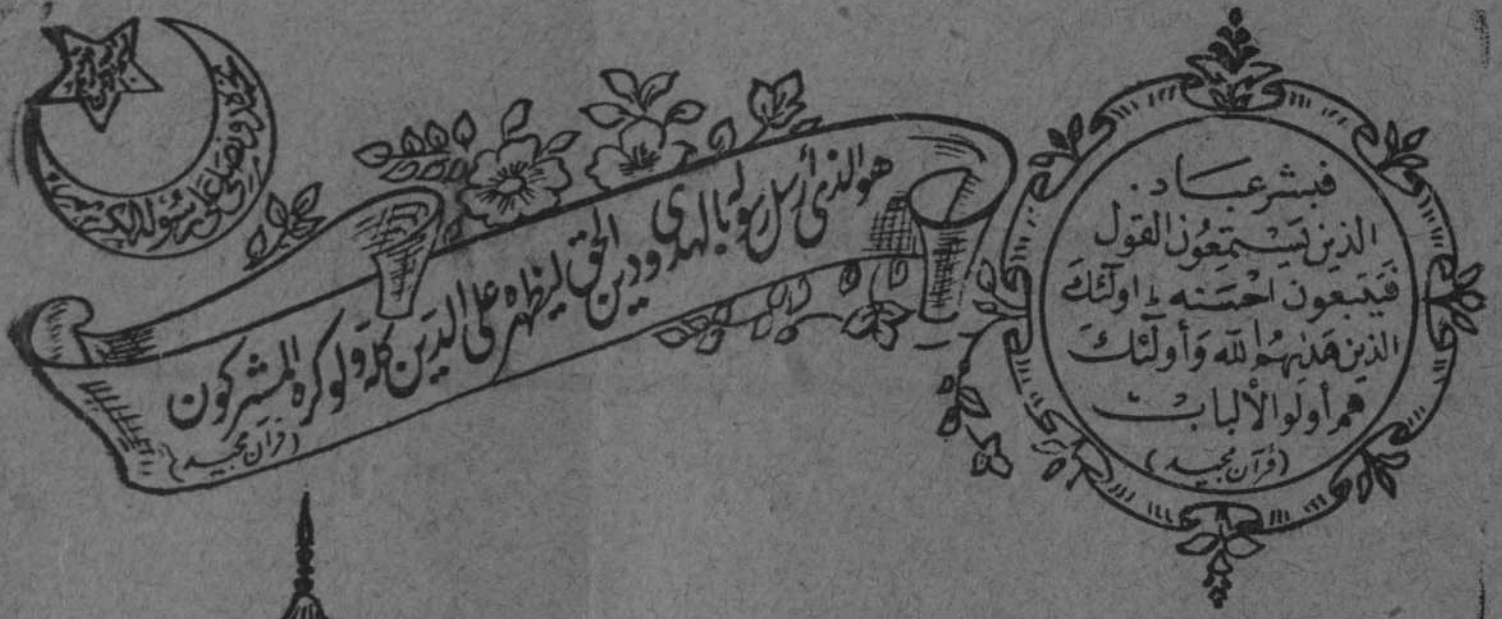 فبشر عباد.
الذين يستمعون القول
فيتبعون احسنه ط اولٓئك
الذين هدٰىهم الله وأولٓئك
هم أولوا الألباب
(قرآن مجيد)
هو الذى أرسل رسوله بالهدى ودين الحق ليظهره على الدين كله ولو كره المشركون
(قرآن مجيد)
نحمده ونصلى على رسوله الكريم